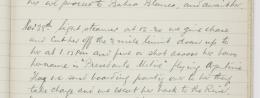 her we proceed to Bahia Blanca, and another.
Nov 28th Sight steamer at 12-20 we give chase
and cut her off the 3 mile limit come up to
her at 1.15 PM and fire a shot across her bows
her name is "Presidente Mitre" flying Argentine
Flag & send boarding party on to her they
take charge and we escort her back to the River